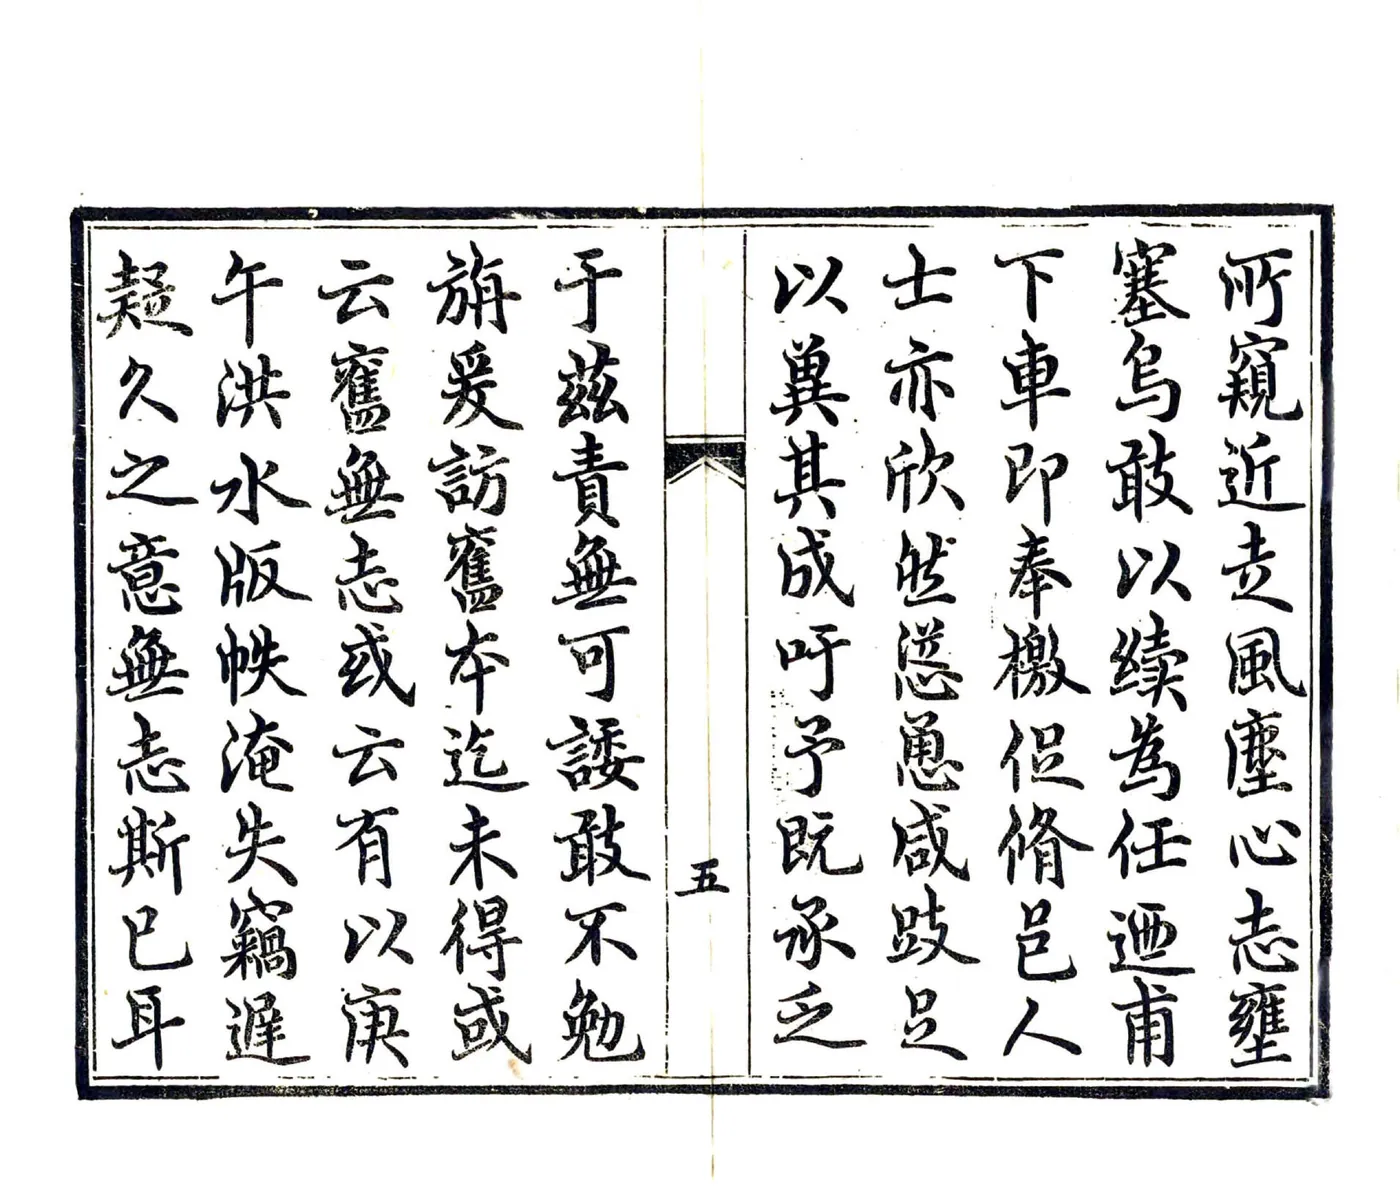 所窺近走風塵心志壅
塞烏敢以續為任迺甫
下車即奉檄促脩邑人
士亦欣然慫恿咸跂足
以冀其成吁予既承乏
五
于茲責無可諉敢不勉
旃爰訪舊本迄未得或
云舊無志或云有以庚
午洪水版帙淹失竊遲
疑久之意無志斯已耳